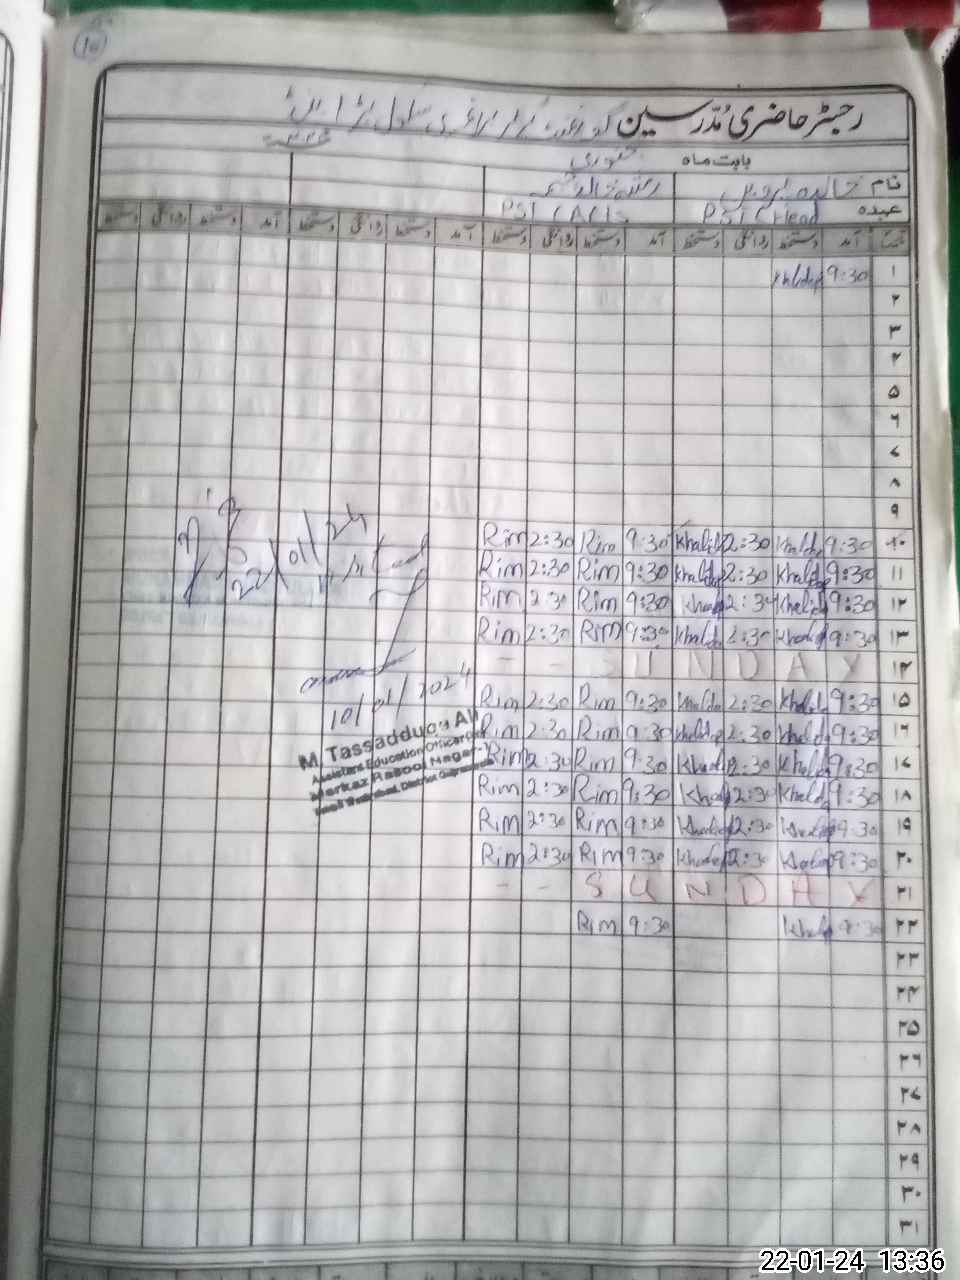 10
رجسٹر حاضری مُدرسین گورنمنٹ گرلز پرائمری سکول
بابت ماہ جنوری
نام خالدہ پروین
عہدہ PST / Head PST / Arts
تاریخ آمد دستخط روانگی دستخط آمد دستخط روانگی دستخط آمد دستخط روانگی دستخط آمد دستخط روانگی دستخط
۱ 9:30 Khalida
۲
۳
۴
۵
۶
۷
۸
۹
۱۰ 9:30 Khalida 2:30 Khalida 9:30 Rim 2:30 Rim
۱۱ 9:30 Khalida 2:30 Khalida 9:30 Rim 2:30 Rim
۱۲ 9:30 Khalida 2:30 Khalida 9:30 Rim 2:30 Rim
۱۳ 9:30 Khalida 2:30 Khalida 9:30 Rim 2:30 Rim
۱۴ - - SUNDAY
۱۵ 9:30 Khalida 2:30 Khalida 9:30 Rim 2:30 Rim
۱۶ 9:30 Khalida 2:30 Khalida 9:30 Rim 2:30 Rim
۱۷ 9:30 Khalida 2:30 Khalida 9:30 Rim 2:30 Rim
۱۸ 9:30 Khalida 2:30 Khalida 9:30 Rim 2:30 Rim
۱۹ 9:30 Khalida 2:30 Khalida 9:30 Rim 2:30 Rim
۲۰ 9:30 Khalida 2:30 Khalida 9:30 Rim 2:30 Rim
۲۱ - - SUNDAY
۲۲ 9:30 Khalida 9:30 Rim
۲۳
۲۴
۲۵
۲۶
۲۷
۲۸
۲۹
۳۰
۳۱
22/01/24
10/01/2024
M. Tassadduq Ali
Assistant Education Officer
Markaz Rasool Nagar-
22-01-24 13:36